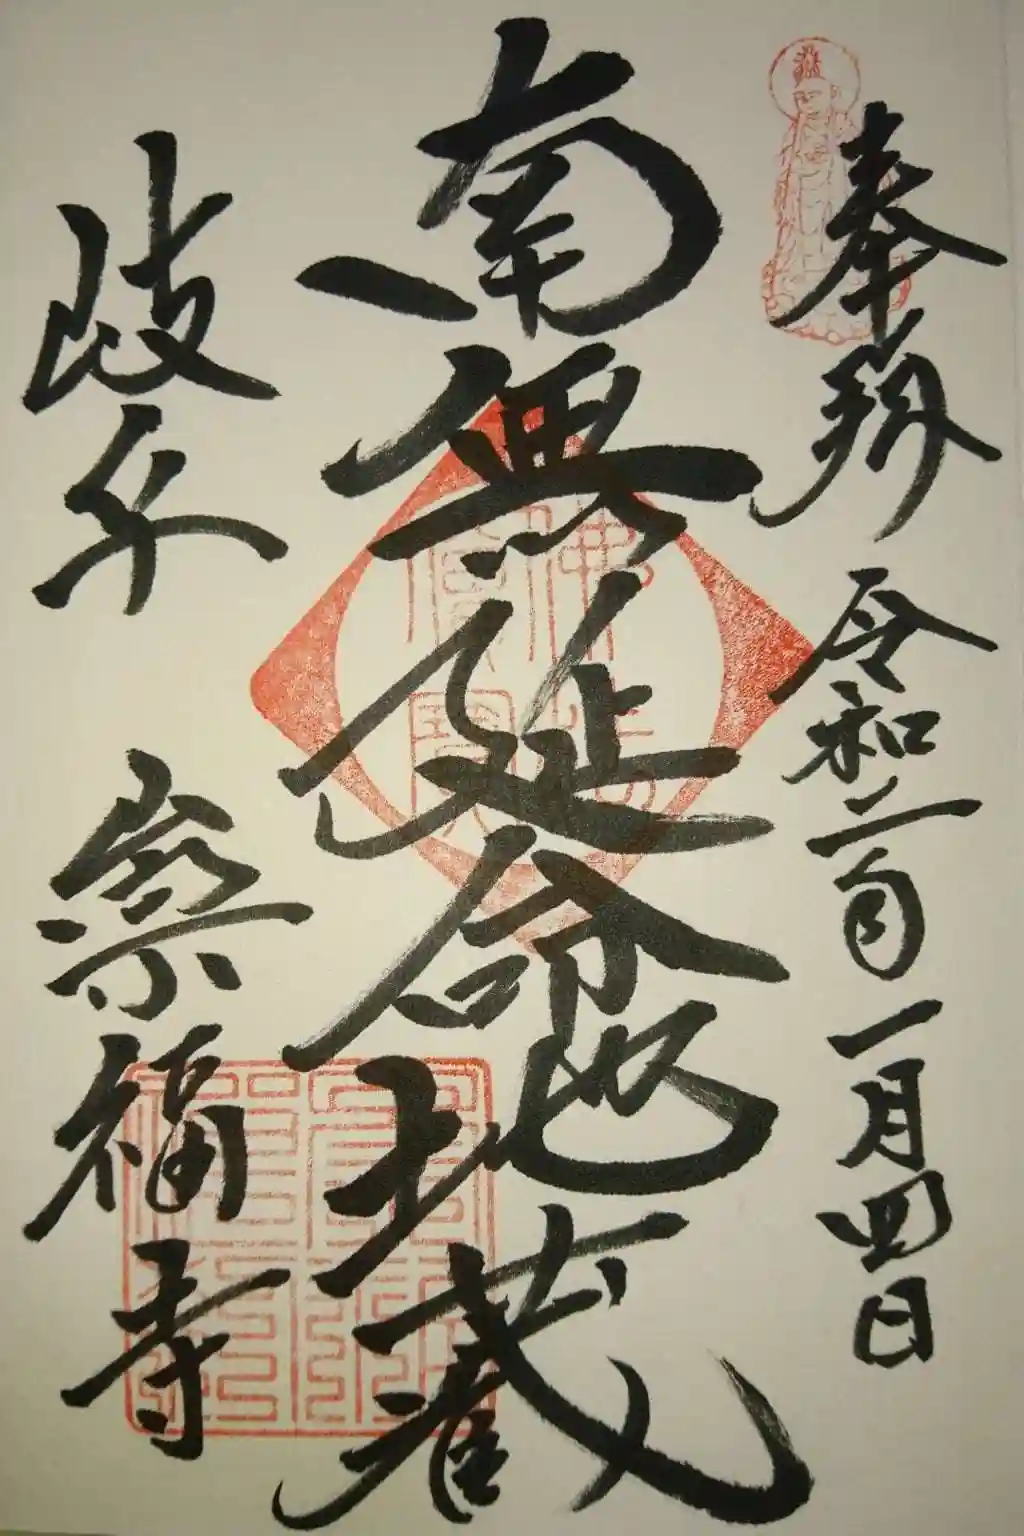 奉拝　令和二年一月四日
南無延命地蔵
岐阜　崇福寺
佛法
僧寶